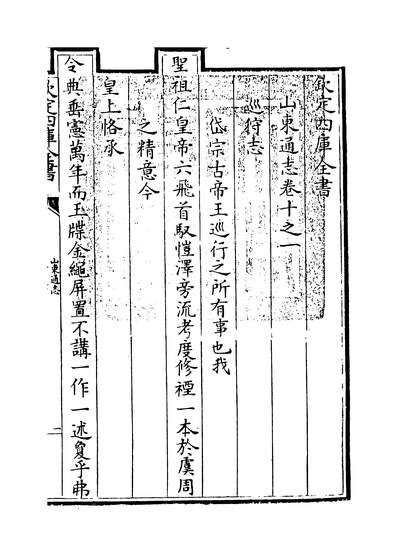 欽定四庫全書
山東通志卷十之一
巡狩志
岱宗古帝王巡行之所有事也我
聖祖仁皇帝六飛首馭愷澤旁流考度修禋一本於虞周
之精意今
皇上恪承
令典垂憲萬年而玉牒金繩屏置不講一作一述夐乎弗
欽定四庫全書
山東通志